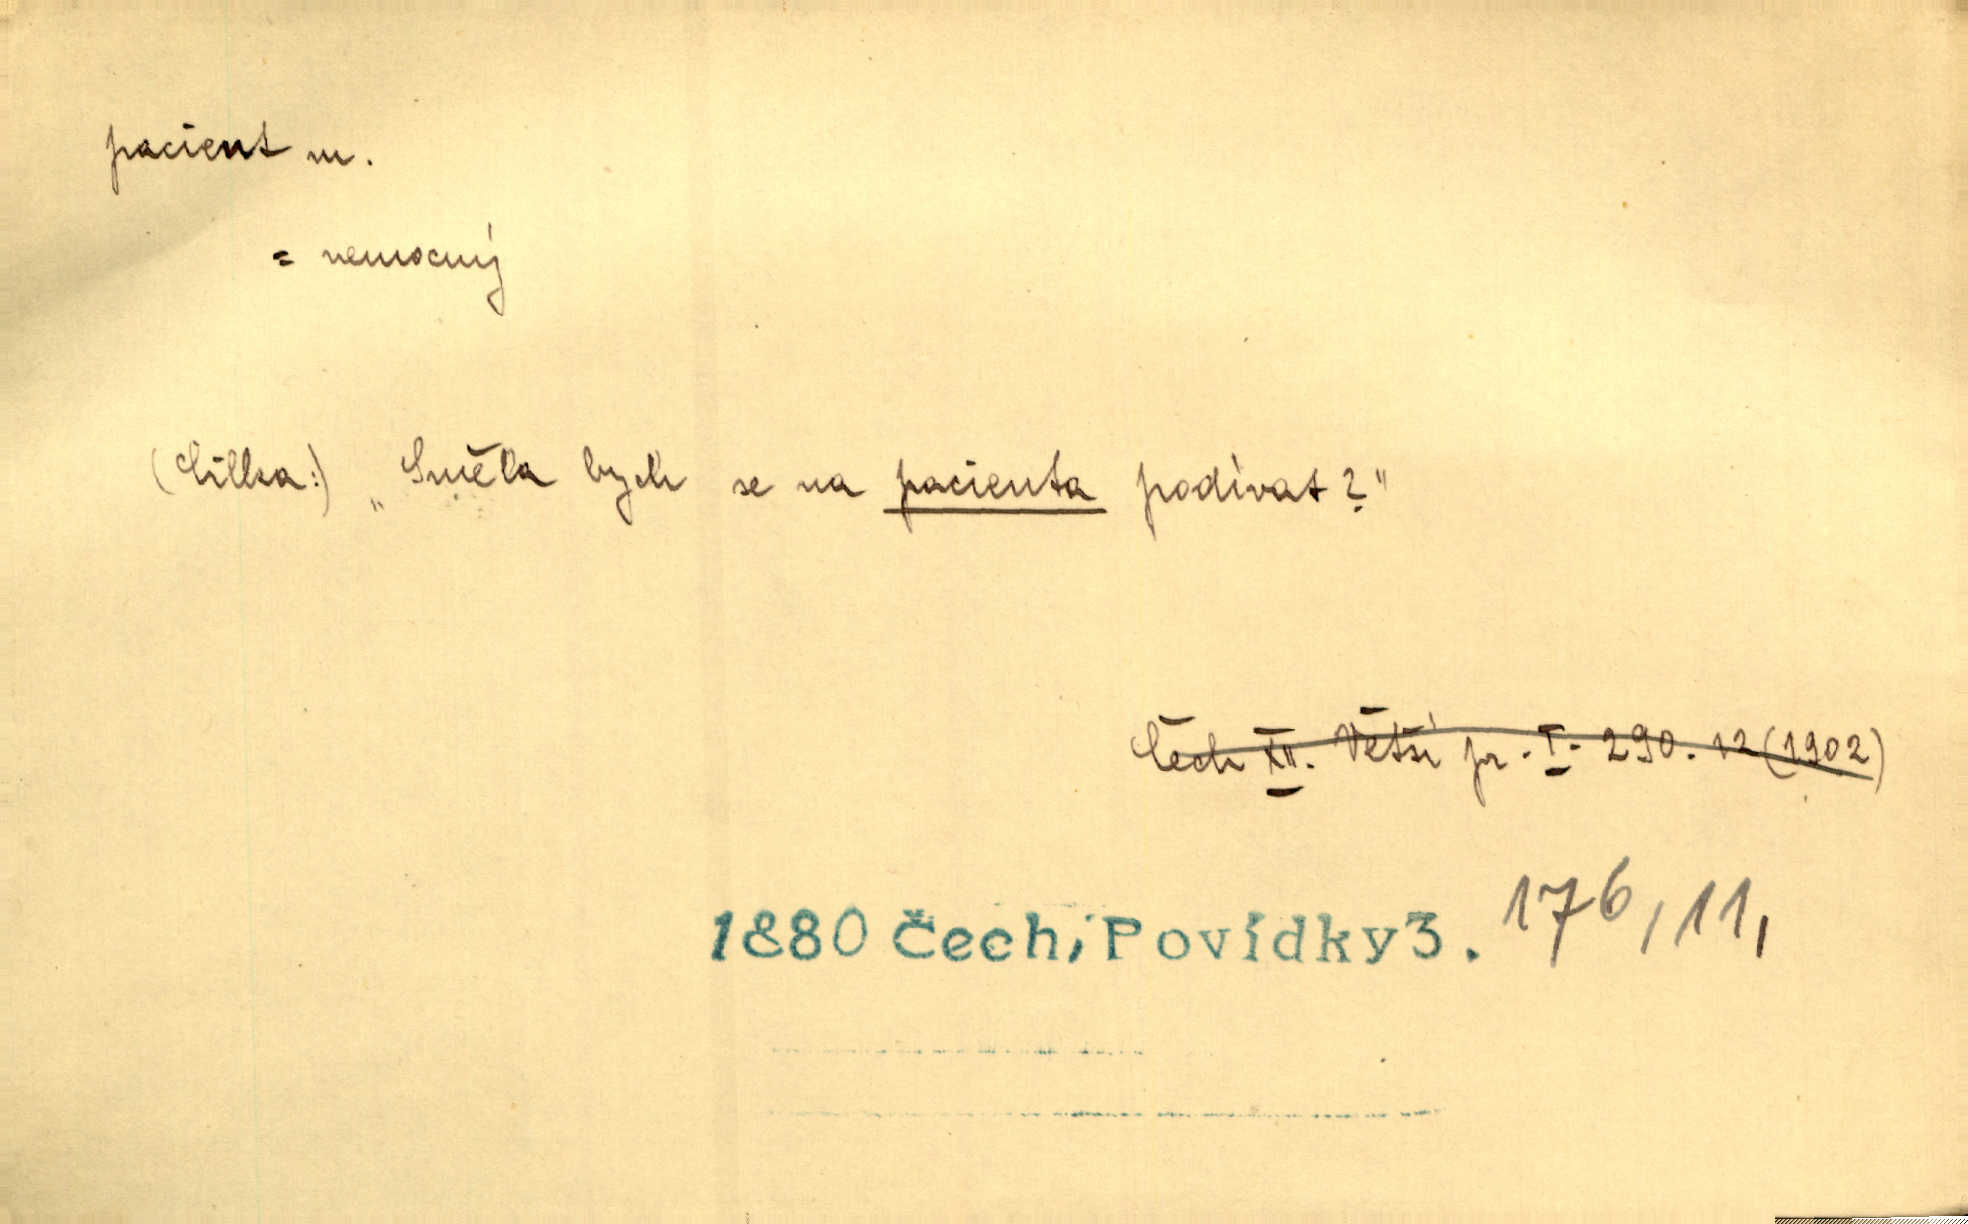 pacient m.
= nemocný
(Cilka:) „Směla bych se na pacienta podívat?"
Čech XII. Větší pr. I. 290. 12 (1902)
1880 Čech, Povídky 3. 176, 11,